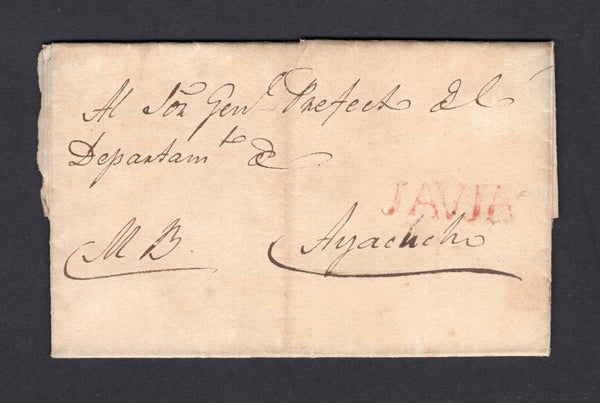 Al Sor Genl. Prefecto del
Departamto de
JAUJA
M B. Ayacucho